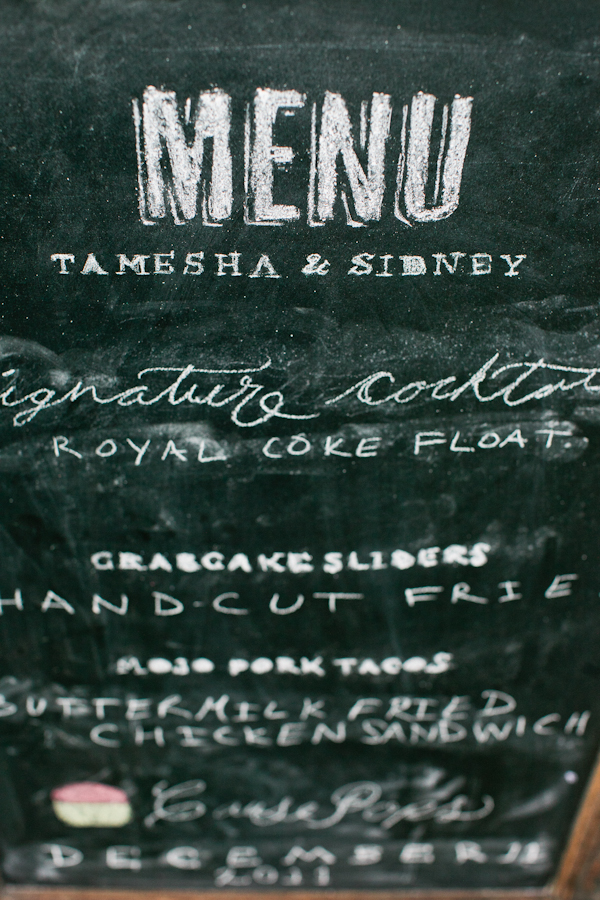 MENU
TAMESHA & SIDNEY
Signature cocktai
ROYAL COKE FLOAT.
CRABCAKE SLIDERS
HAND-CUT FRIE
MOJO PORK TACOS
BUTTERMILK FRIED
CHICKEN SANDWICH
Pops
DECEMBER
2011